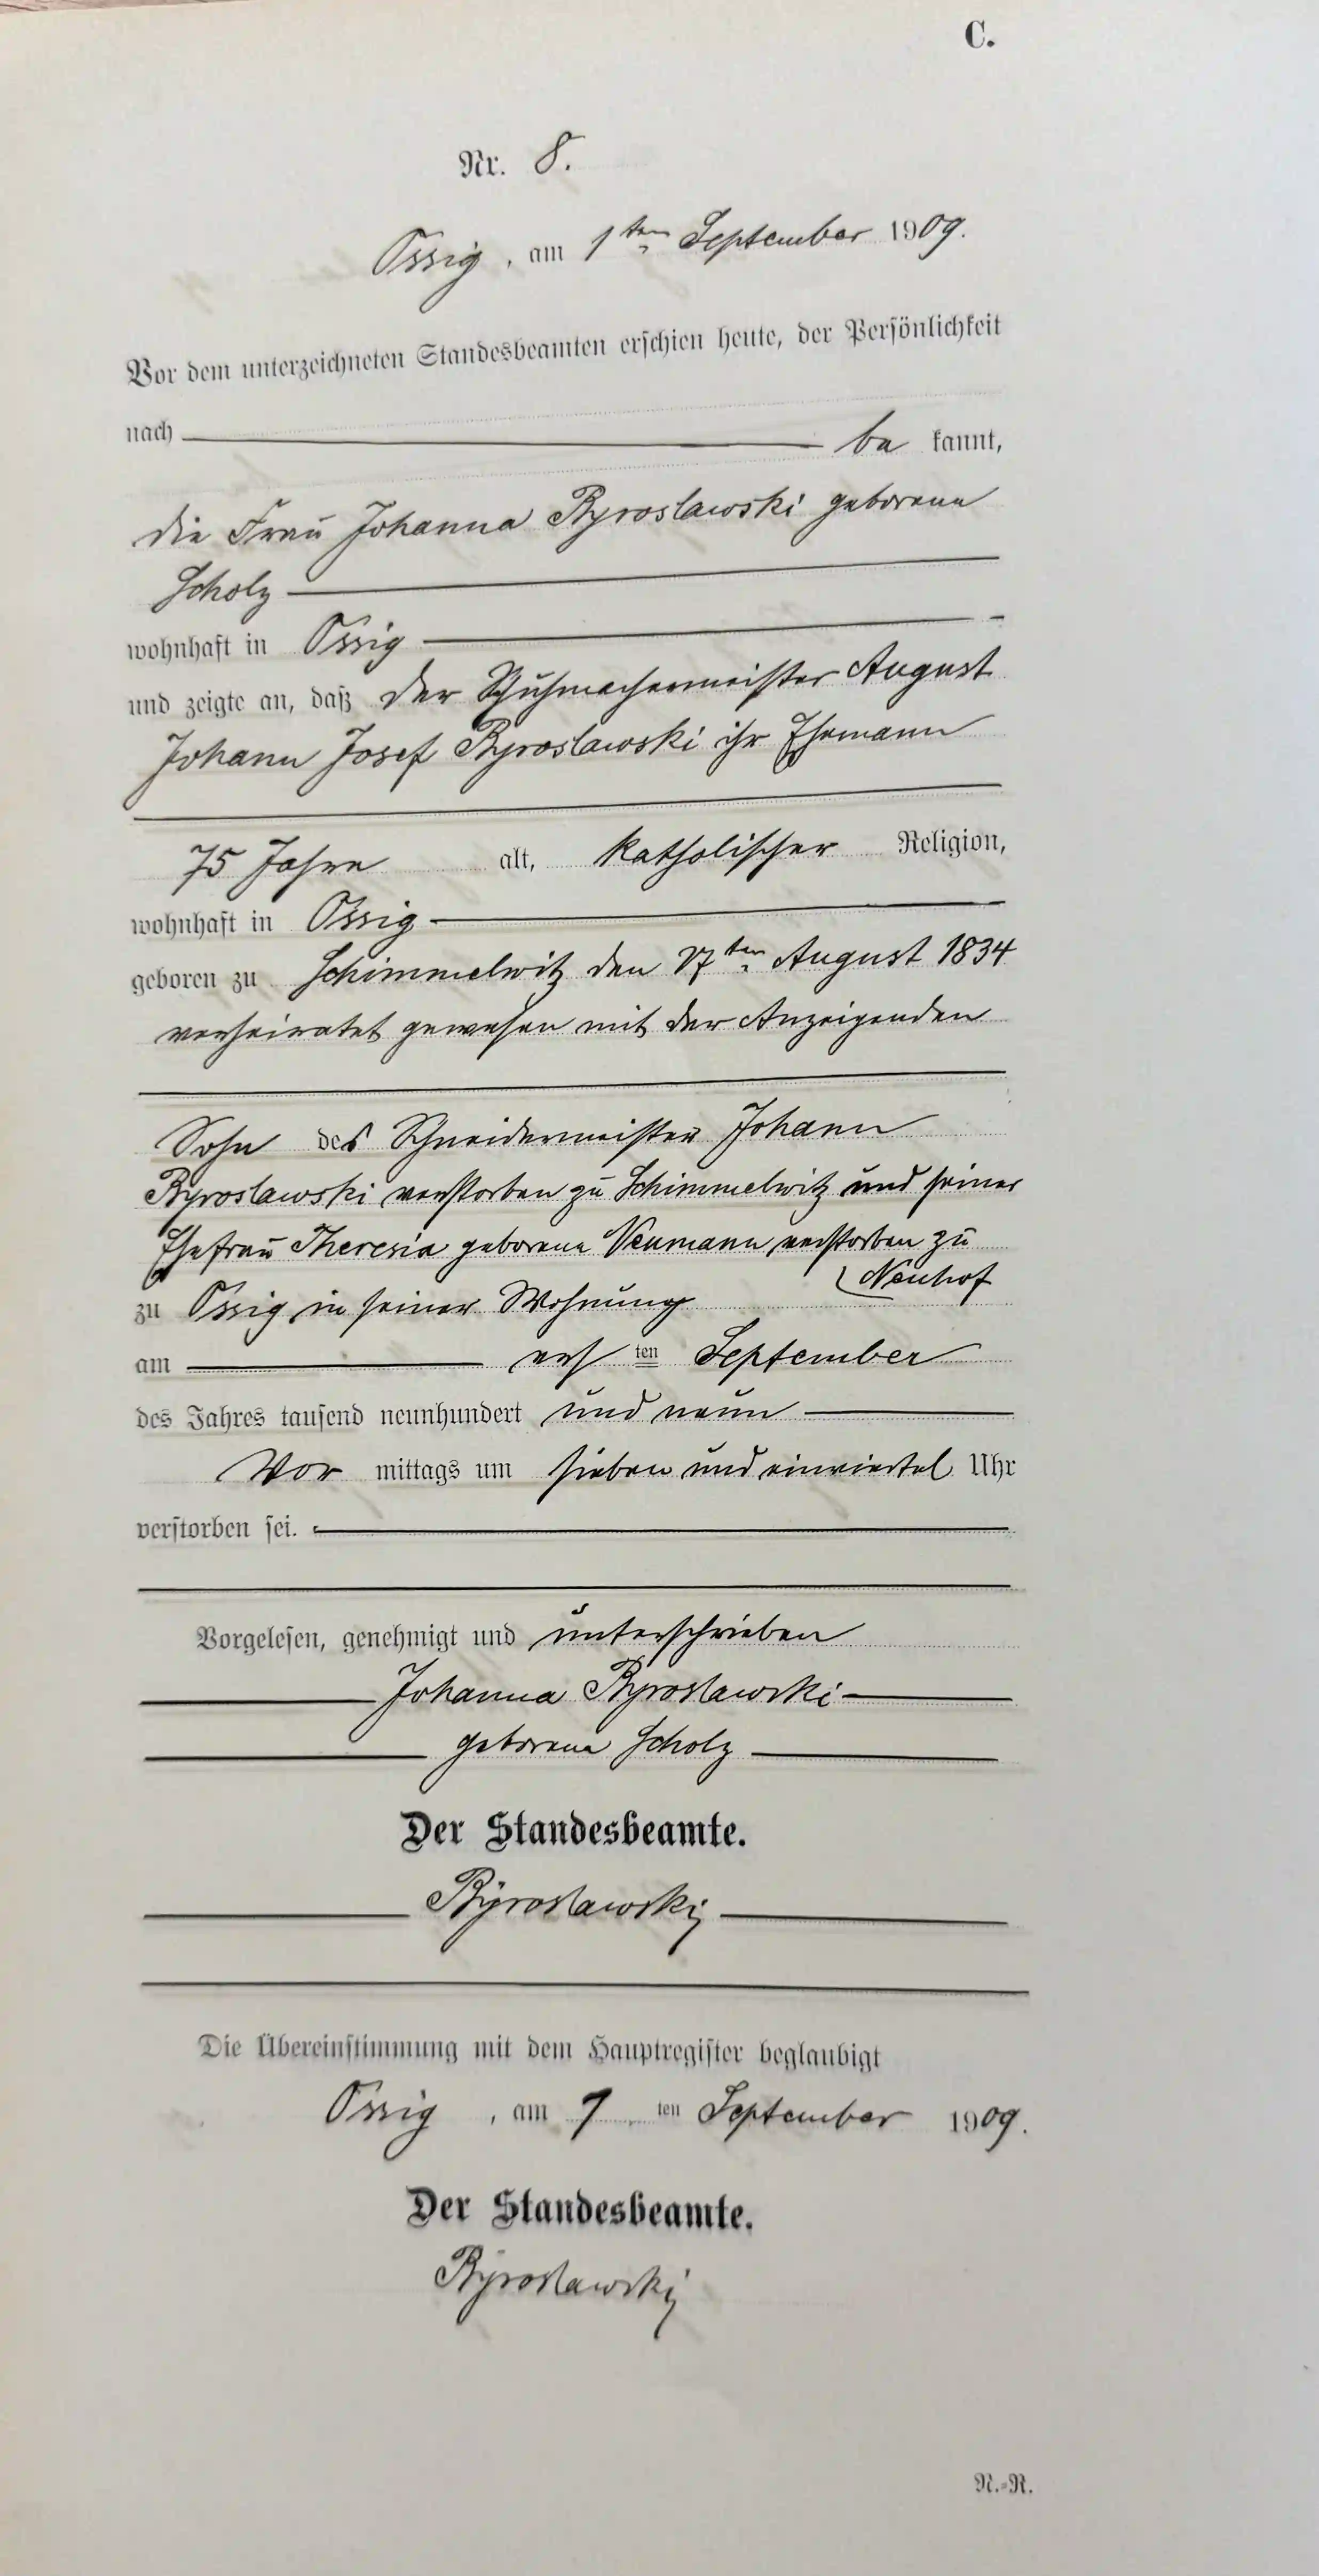 C.
Nr. 8.
Ossig, am 1ten September 1909.
Vor dem unterzeichneten Standesbeamten erschien heute, der Persönlichkeit
nach be kannt,
die Frau Johanna Byroslawski geborene
Scholz
wohnhaft in Ossig
und zeigte an, daß der Schuhmachermeister August
Johann Josef Byroslawski ihr Ehemann
75 Jahre alt, katholischer Religion,
wohnhaft in Ossig
geboren zu Schimmelwitz den ten August 1834
verheiratet gewesen mit der Anzeigenden
Sohn des Schneidermeister Johann
Byroslawski verstorben zu Schimmelwitz und seiner
Ehefrau Theresia geborene Neumann verstorben zu
Neuhof
zu Ossig in seiner Wohnung
am ersten September
des Jahres tausend neunhundert und neun
Vor mittags um sieben und einviertel Uhr
verstorben sei.
Vorgelesen, genehmigt und unterschrieben
Johanna Byroslawski
geborene Scholz
Der Standesbeamte.
Byroslawski
Die Übereinstimmung mit dem Hauptregister beglaubigt
Ossig, am ten September 1909.
Der Standesbeamte.
Byroslawski
N.=R.